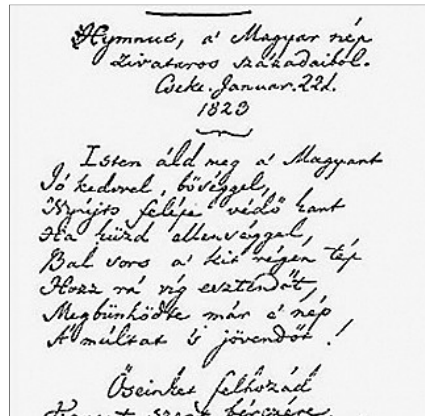 Hymnus, a' Magyar nép
zivataros századaiból.
Cseke. Januar. 22d.
1823
Isten áld meg a' Magyart
Jó kedvvel, bőséggel,
Nyújts feléje védő kart
Ha küzd ellenséggel,
Bal sors a' kit régen tép
Hozz rá víg esztendőt,
Megbűnhödte már e' nép
A' múltat 's jövendőt!
Őseinket felhozád
Kárpát szent bérczére